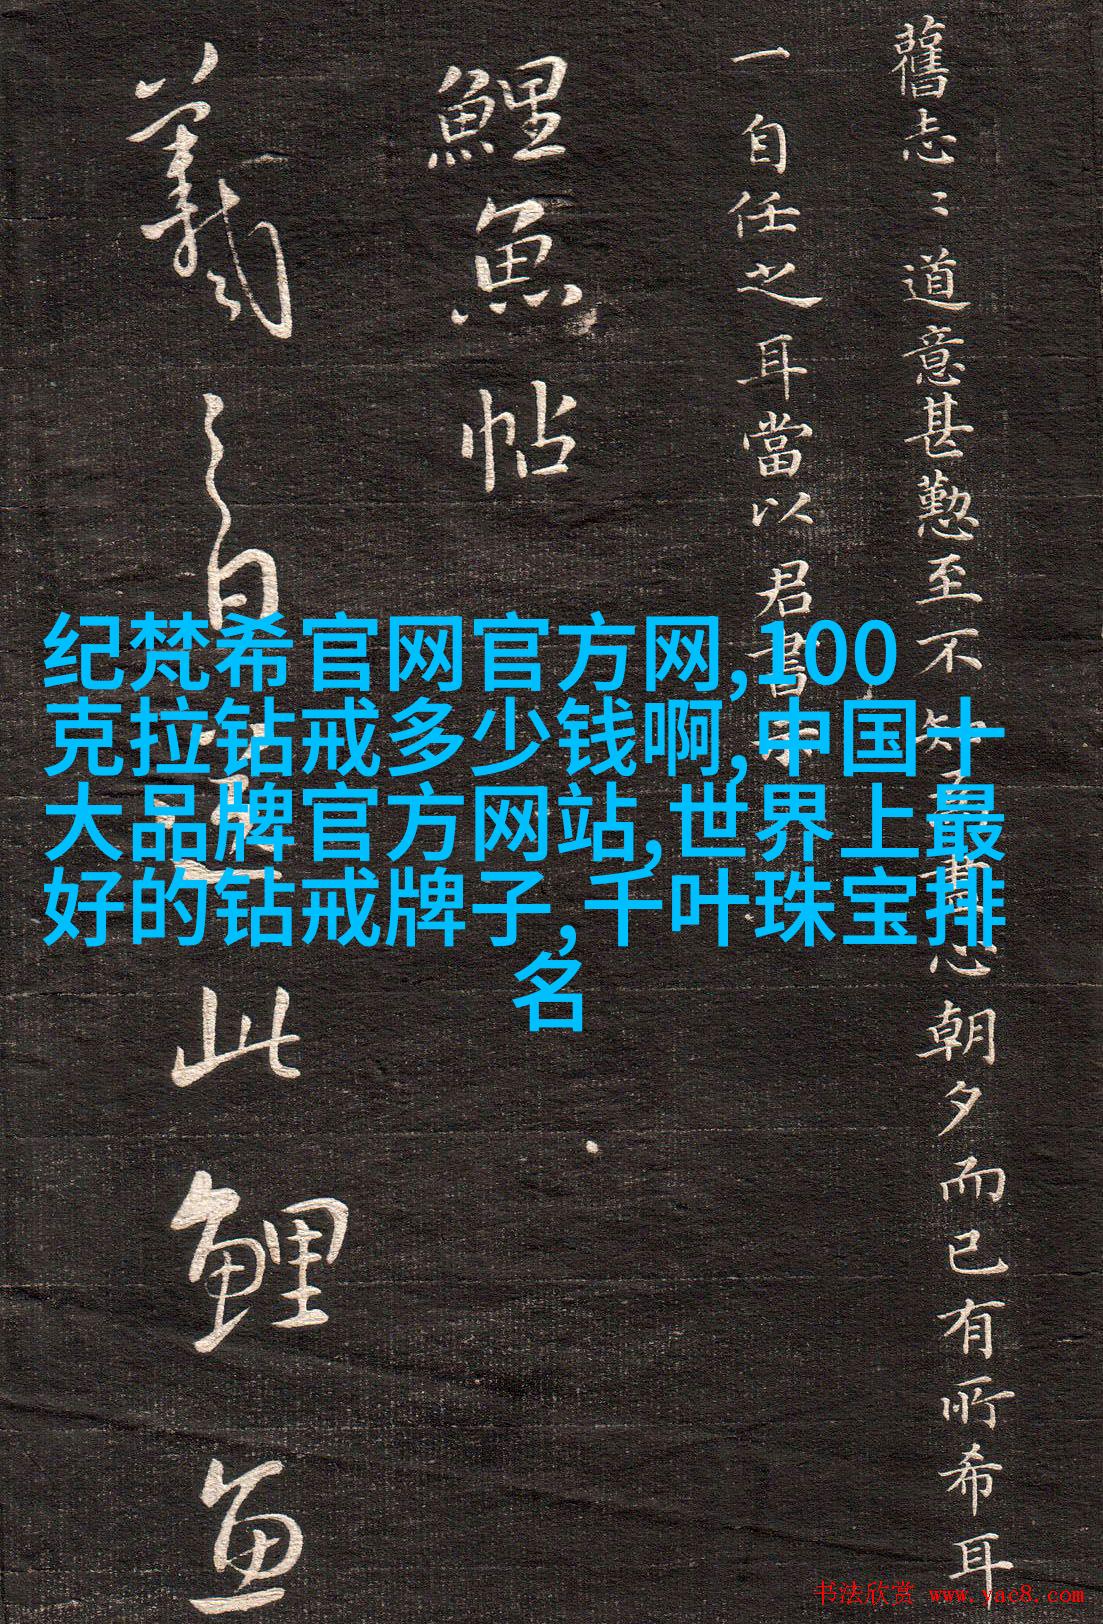 舊志〻道意甚勤至不
朝夕而已有所希耳
一自任之耳當以君書
鯉魚帖
羲之白
此鯉魚
纪梵希官网官方网,100
克拉钻戒多少钱啊,中国十
大品牌官方网站,世界上最
好的钻戒牌子,千叶珠宝排
名
书法欣赏 www.yac8.com